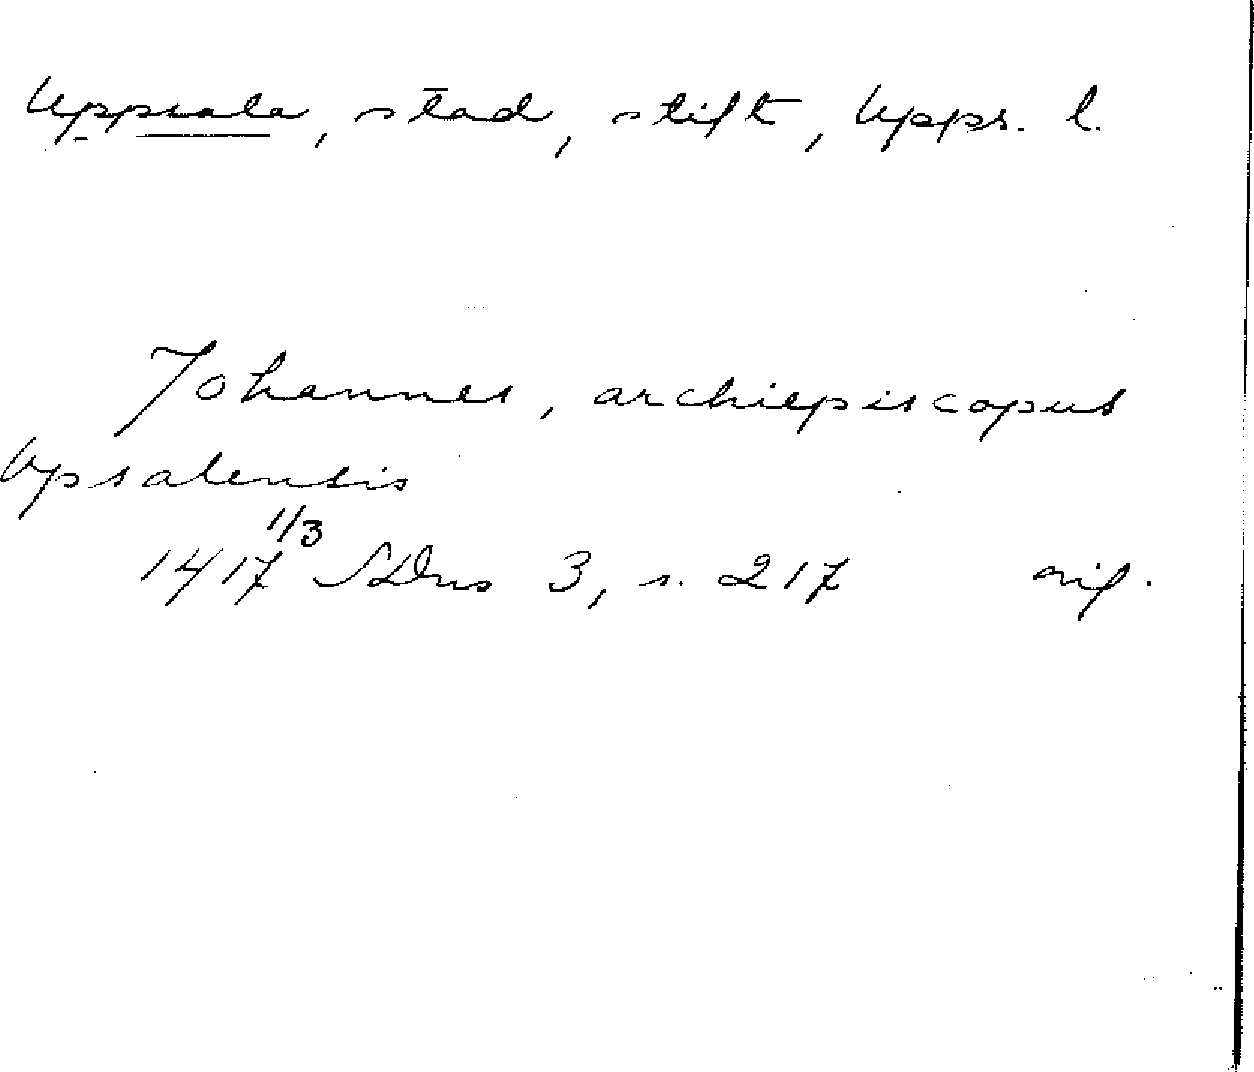 Uppsala, stad, stift, Upps. l.
Johannes, archiepiscopus
Upsalensis
1417 1/3 SDns 3, s. 217 orig.